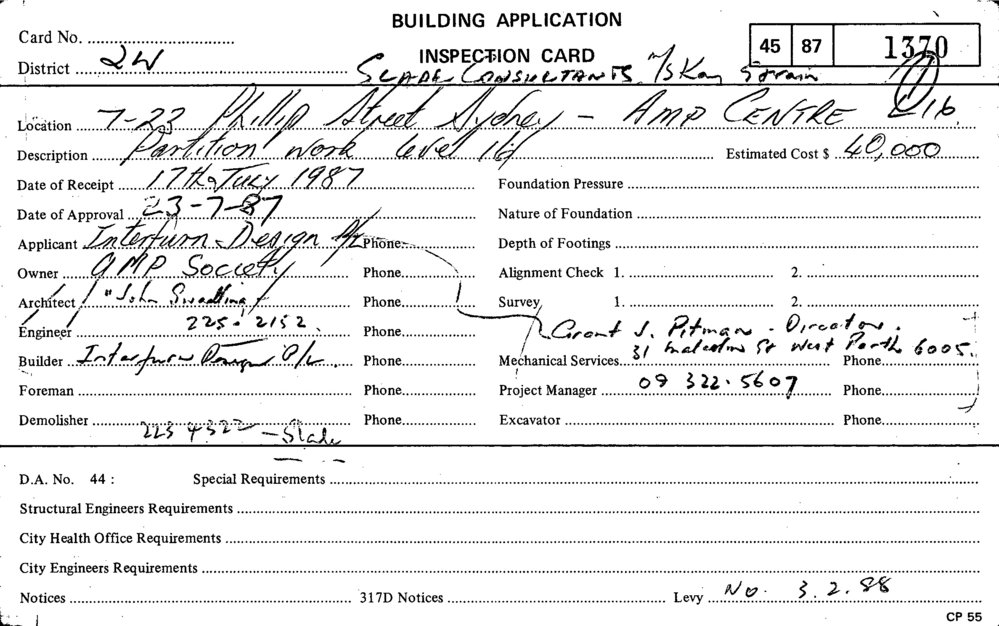 BUILDING APPLICATION
Card No.
INSPECTION CARD
45 87 1370
District 2W
SLADE CONSULTANTS M/s Kay Strain
Location 7-23 Phillip Street Sydney - AMP CENTRE L16.
Description Partition work level 16 Estimated Cost $ 40,000
Date of Receipt 17th July 1987 Foundation Pressure
Date of Approval 23-7-87 Nature of Foundation
Applicant Interfurn Design P/L Phone Depth of Footings
Owner AMP Society Phone Alignment Check 1. 2.
Architect "John Phone Survey 1. 2.
Engineer 225.2152. Phone Grant J. Pitman - Director.
Builder Interfurn Design P/L. Phone Mechanical Services 31 Malcolm St West Perth 6005. Phone
Foreman Phone Project Manager 09 322.5607 Phone
Demolisher 223 4322 - Slade Phone Excavator Phone
D.A. No. 44 : Special Requirements
Structural Engineers Requirements
City Health Office Requirements
City Engineers Requirements
Notices 317D Notices Levy No. 3.2.88
CP 55